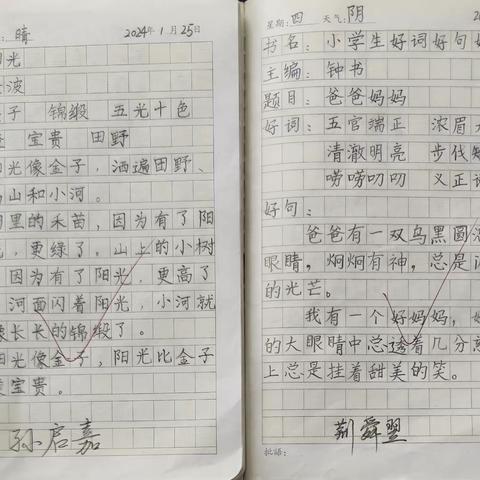 ：晴 2024年1月25日
阳光
波
子 锦缎 五光十色
宝贵 田野
光像金子，洒遍田野、
山和小河。
里的禾苗，因为有了阳
，更绿了。山上的小树
因为有了阳光，更高了
河面闪着阳光，小河就
像长长的锦缎了。
阳光像金子，阳光比金子
宝贵。
孙启嘉
星期：四 天气：阴 20
书名：小学生好词好句好
主编：钟书
题目：爸爸妈妈
好词：五官端正 浓眉大
清澈明亮 步伐矫
唠唠叨叨 义正词
好句：
爸爸有一双乌黑圆
眼睛，炯炯有神，总是
的光芒。
我有一个好妈妈，
的大眼睛中总透着几分
上总是挂着甜美的笑。
荆舜翌
批语：